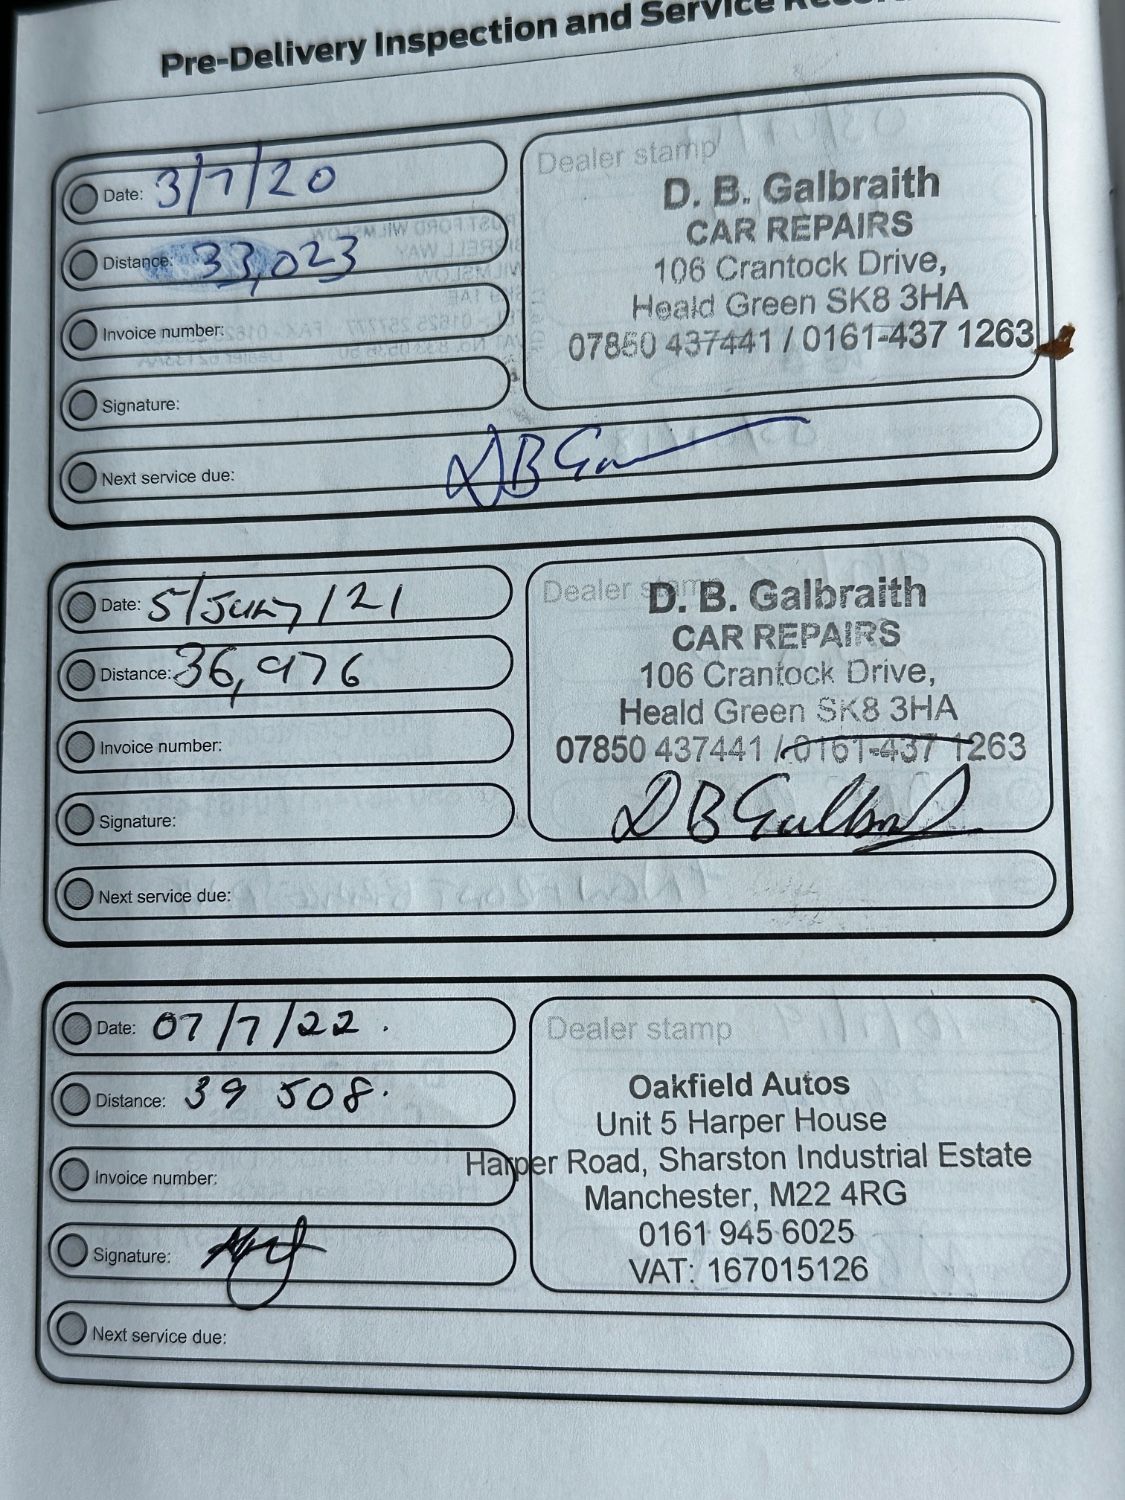 Pre-Delivery Inspection and Service Record
Date: 3/7/20
Distance: 33,023
Invoice number:
Signature:
Next service due:
Dealer stamp
D. B. Galbraith
CAR REPAIRS
106 Crantock Drive,
Heald Green SK8 3HA
07850 437441 / 0161-437 1263
DB Ga
Date: 5/JULY/21
Distance: 36,976
Invoice number:
Signature:
Next service due:
Dealer stamp
D. B. Galbraith
CAR REPAIRS
106 Crantock Drive,
Heald Green SK8 3HA
07850 437441 / 0161-437 1263
DB Galbraith
Date: 07/7/22.
Distance: 39 508.
Invoice number:
Signature:
Next service due:
Dealer stamp
Oakfield Autos
Unit 5 Harper House
Harper Road, Sharston Industrial Estate
Manchester, M22 4RG
0161 945 6025
VAT: 167015126